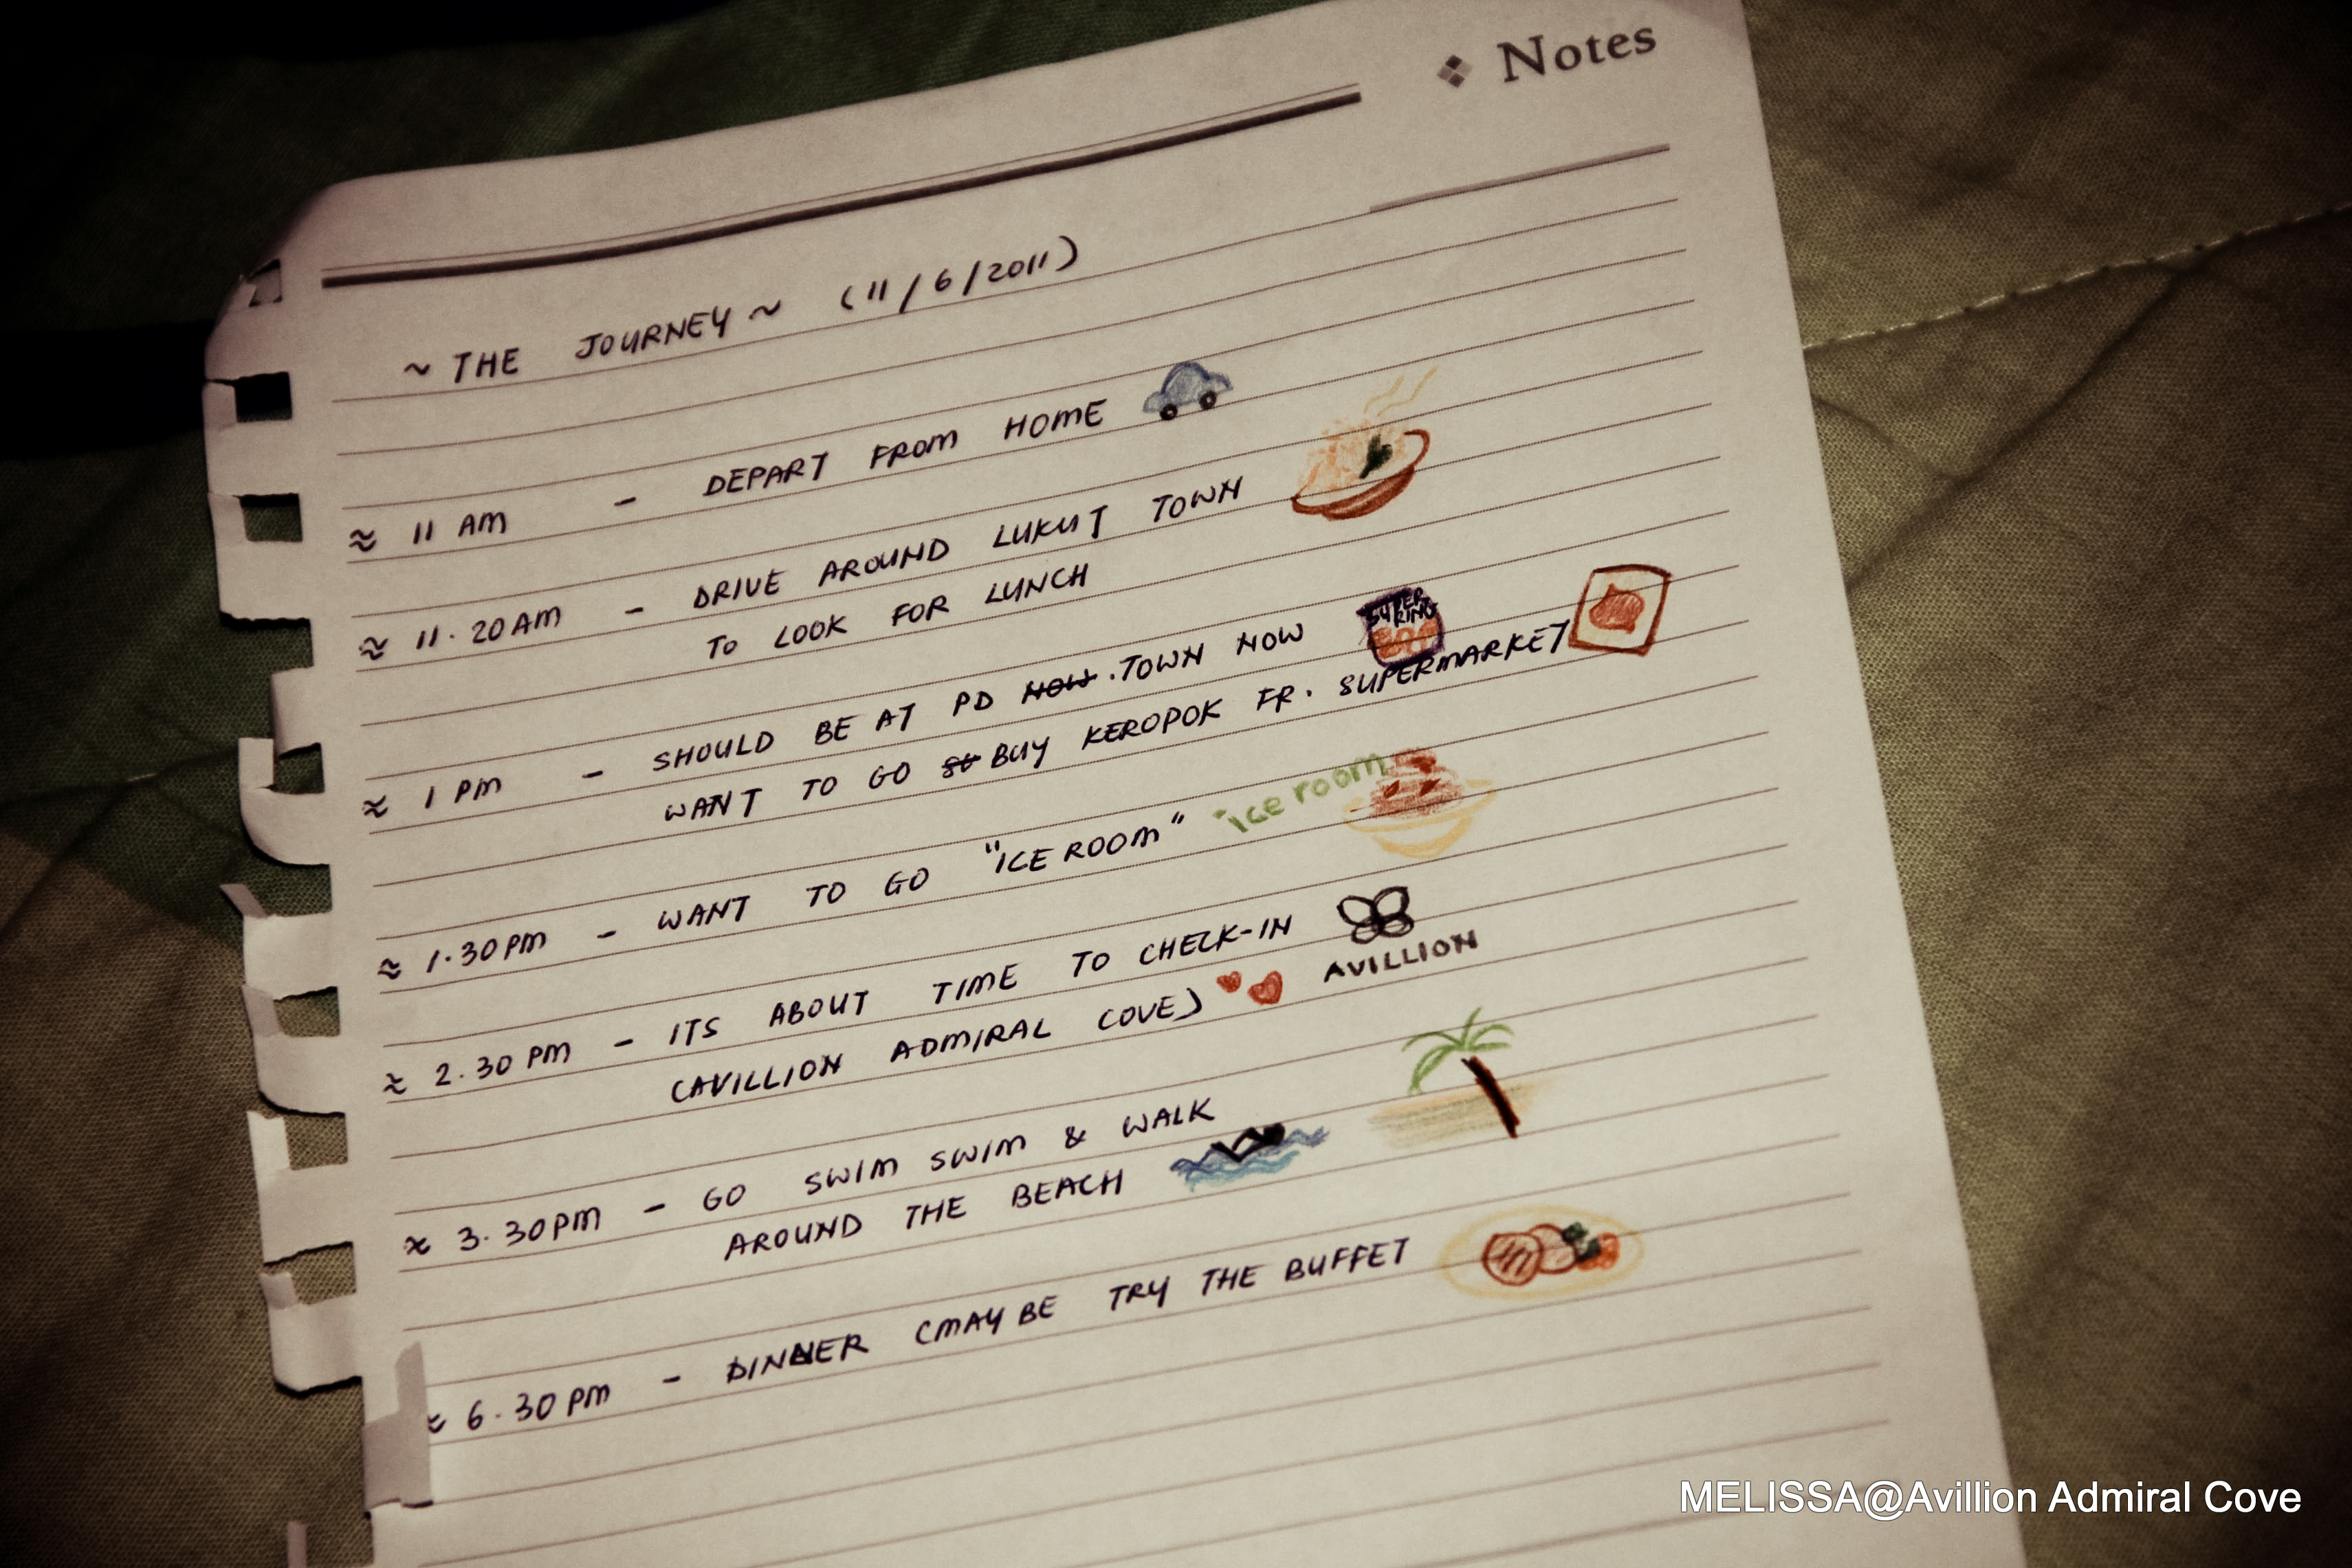 Notes
~ THE JOURNEY ~ (11/6/2011)
≈ 11 AM - DEPART FROM HOME
≈ 11.20AM - DRIVE AROUND LUKUT TOWN
TO LOOK FOR LUNCH
≈ 1 PM - SHOULD BE AT PD NOW .TOWN NOW
SUPER
RING
WANT TO GO BUY KEROPOK FR. SUPERMARKET
≈ 1.30PM - WANT TO GO "ICE ROOM" "ice room"
≈ 2.30 PM - ITS ABOUT TIME TO CHECK-IN
(AVILLION ADMIRAL COVE)
AVILLION
≈ 3.30PM - GO SWIM SWIM & WALK
AROUND THE BEACH
≈ 6.30PM - DINNER (MAYBE TRY THE BUFFET
MELISSA@Avillion Admiral Cove